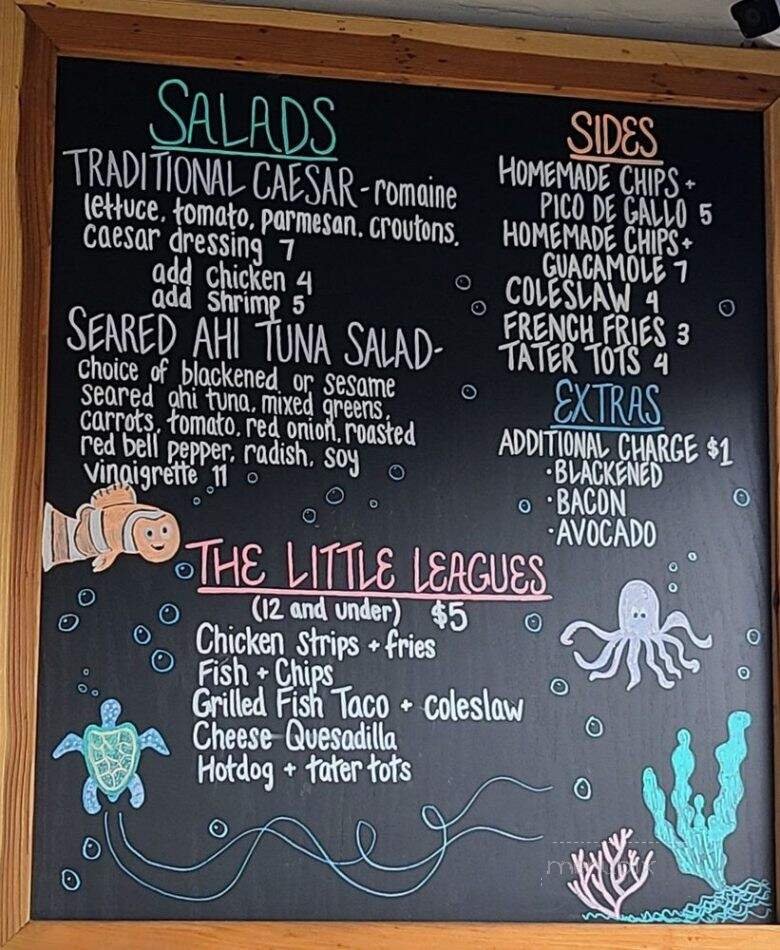 SALADS
TRADITIONAL CAESAR - romaine
lettuce, tomato, parmesan, croutons,
caesar dressing 7
add chicken 4
add shrimp 5
SEARED AHI TUNA SALAD-
choice of blackened or sesame
seared ahi tuna, mixed greens,
carrots, tomato, red onion, roasted
red bell pepper, radish, soy
vinaigrette 11
SIDES
HOMEMADE CHIPS +
PICO DE GALLO 5
HOMEMADE CHIPS +
GUACAMOLE 7
COLESLAW 4
FRENCH FRIES 3
TATER TOTS 4
EXTRAS
ADDITIONAL CHARGE $1
·BLACKENED
·BACON
·AVOCADO
THE LITTLE LEAGUES
(12 and under) $5
Chicken strips + fries
Fish + Chips
Grilled Fish Taco + coleslaw
Cheese Quesadilla
Hotdog + tater tots